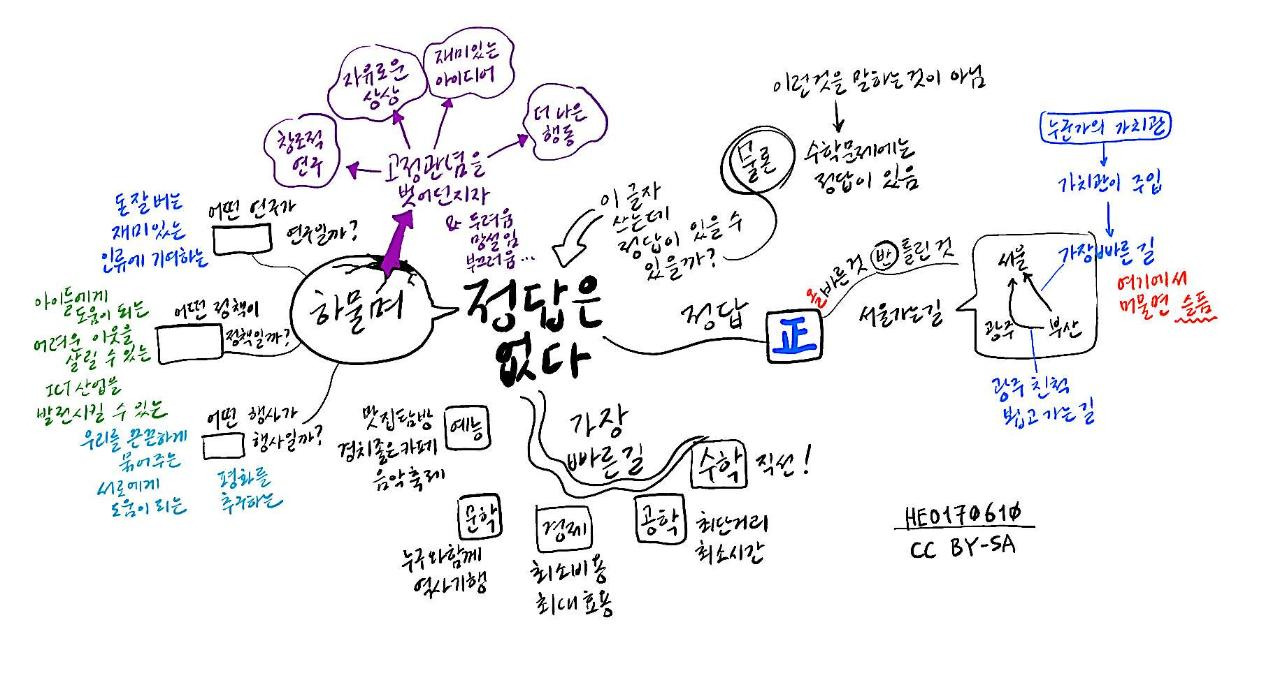 정답은
없다
이 글자
쓰는데
정답이 있을 수
있을까?
물론
이런것을 말하는것이 아님
수학문제에는
정답이 있음
정답
正
올바른것 반 틀린 것
서울가는길
서울
광주
부산
가장빠른길
가치관이 주입
누군가의 가치관
여기에서
머물면 슬픔
광주 친척
뵙고가는길
가장
빠른길
수학
직선!
공학
최단거리
최소시간
경제
최소비용
최대효용
문학
누구와함께
역사기행
예능
맛집탐방
경치좋은카페
음악축제
하물며
고정관념을
벗어던지자
두려움
망설임
부끄러움...
창조적
연주
자유로운
상상
재미있는
아이디어
더 나은
행동
어떤 연구가
연구일까?
돈 잘 버는
재미있는
인류에 기여하는
어떤 정책이
정책일까?
아이들에게
도움이 되는
어려운 이웃을
살릴 수 있는
ICT 산업을
발전시킬 수 있는
어떤 행사가
행사일까?
우리를 끈끈하게
묶어주는
서로에게
도움이 되는
평화를
추구하는
HEO170610
CC BY-SA